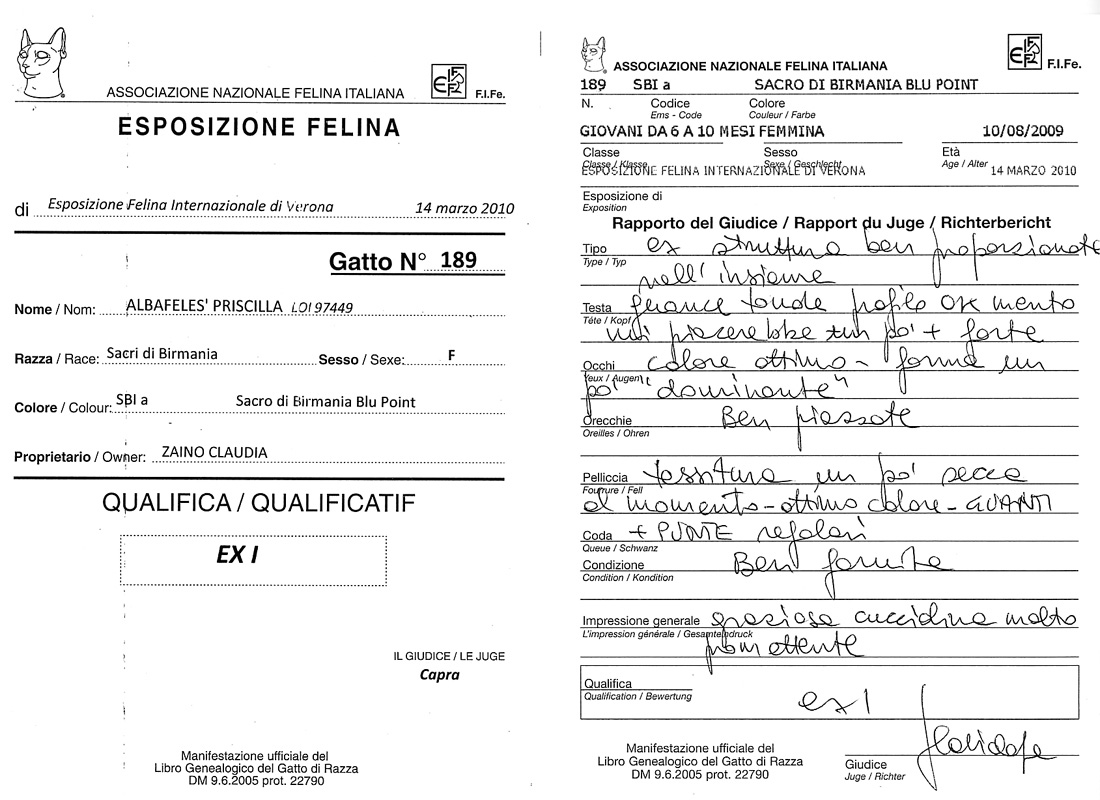 ASSOCIAZIONE NAZIONALE FELINA ITALIANA F.I.Fe.
ESPOSIZIONE FELINA
di Esposizione Felina Internazionale di Verona 14 marzo 2010
Gatto N° 189
Nome / Nom: ALBAFELES' PRISCILLA LOI 97449
Razza / Race: Sacri di Birmania Sesso / Sexe: F
Colore / Colour: SBI a Sacro di Birmania Blu Point
Proprietario / Owner: ZAINO CLAUDIA
QUALIFICA / QUALIFICATIF
EX I
IL GIUDICE / LE JUGE
Capra
Manifestazione ufficiale del
Libro Genealogico del Gatto di Razza
DM 9.6.2005 prot. 22790
ASSOCIAZIONE NAZIONALE FELINA ITALIANA F.I.Fe.
189 SBI a SACRO DI BIRMANIA BLU POINT
N. Codice Colore
Ems - Code Couleur / Farbe
GIOVANI DA 6 A 10 MESI FEMMINA 10/08/2009
Classe Sesso Età
Classe / Klasse Sexe / Geschlecht Age / Alter
ESPOSIZIONE FELINA INTERNAZIONALE DI VERONA 14 MARZO 2010
Esposizione di
Exposition
Rapporto del Giudice / Rapport du Juge / Richterbericht
Tipo ex struttura ben proporzionata
Type / Typ
nell'insieme
Testa guance tonde profilo ok mento
Téte / Kopf
mi piacerebbe un po' + forte
Occhi colore ottimo - forma un
Yeux / Augen
po' "dominante"
Orecchie Ben piazzate
Oreilles / Ohren
Pelliccia tessitura un po' secca
Fourrure / Fell
al momento - ottimo colore - GUANTI
Coda + PUNTE regolari
Queue / Schwanz
Condizione Ben fornita
Condition / Kondition
Impressione generale graziosa cucciolina molto
L'impression générale / Gesamteindruck
promettente
Qualifica ex 1
Qualification / Bewertung
Manifestazione ufficiale del
Libro Genealogico del Gatto di Razza
DM 9.6.2005 prot. 22790
Giudice
Juge / Richter